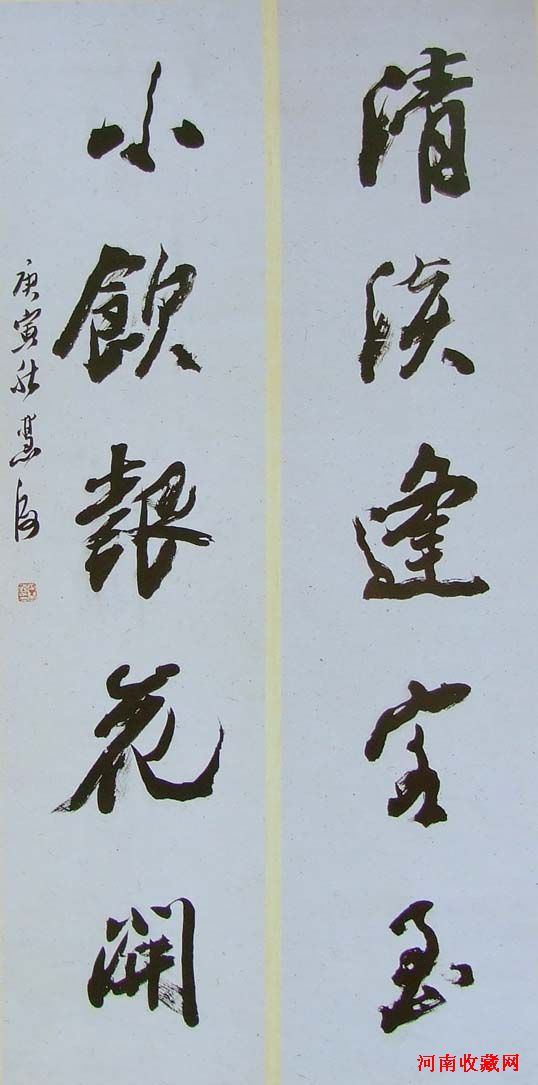 清談逢客至
小飲報花開
庚寅秋
河南收藏网